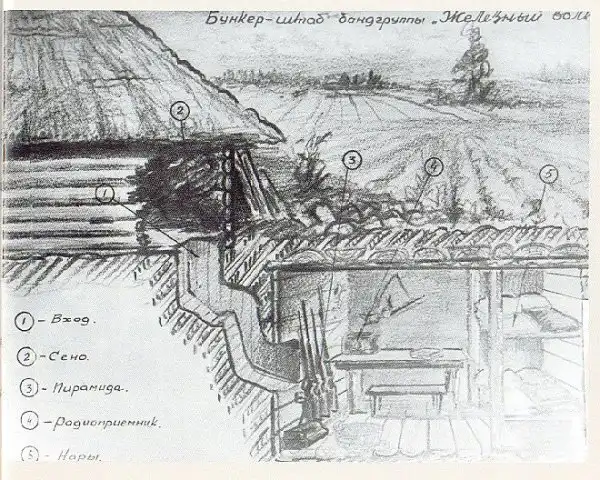 Бункер-штаб бандгруппы „Железный
2
3
4
1
5
1 - Вход.
2 - Сено.
3 - Пирамида.
4 - Радиоприемник.
5 - Нары.